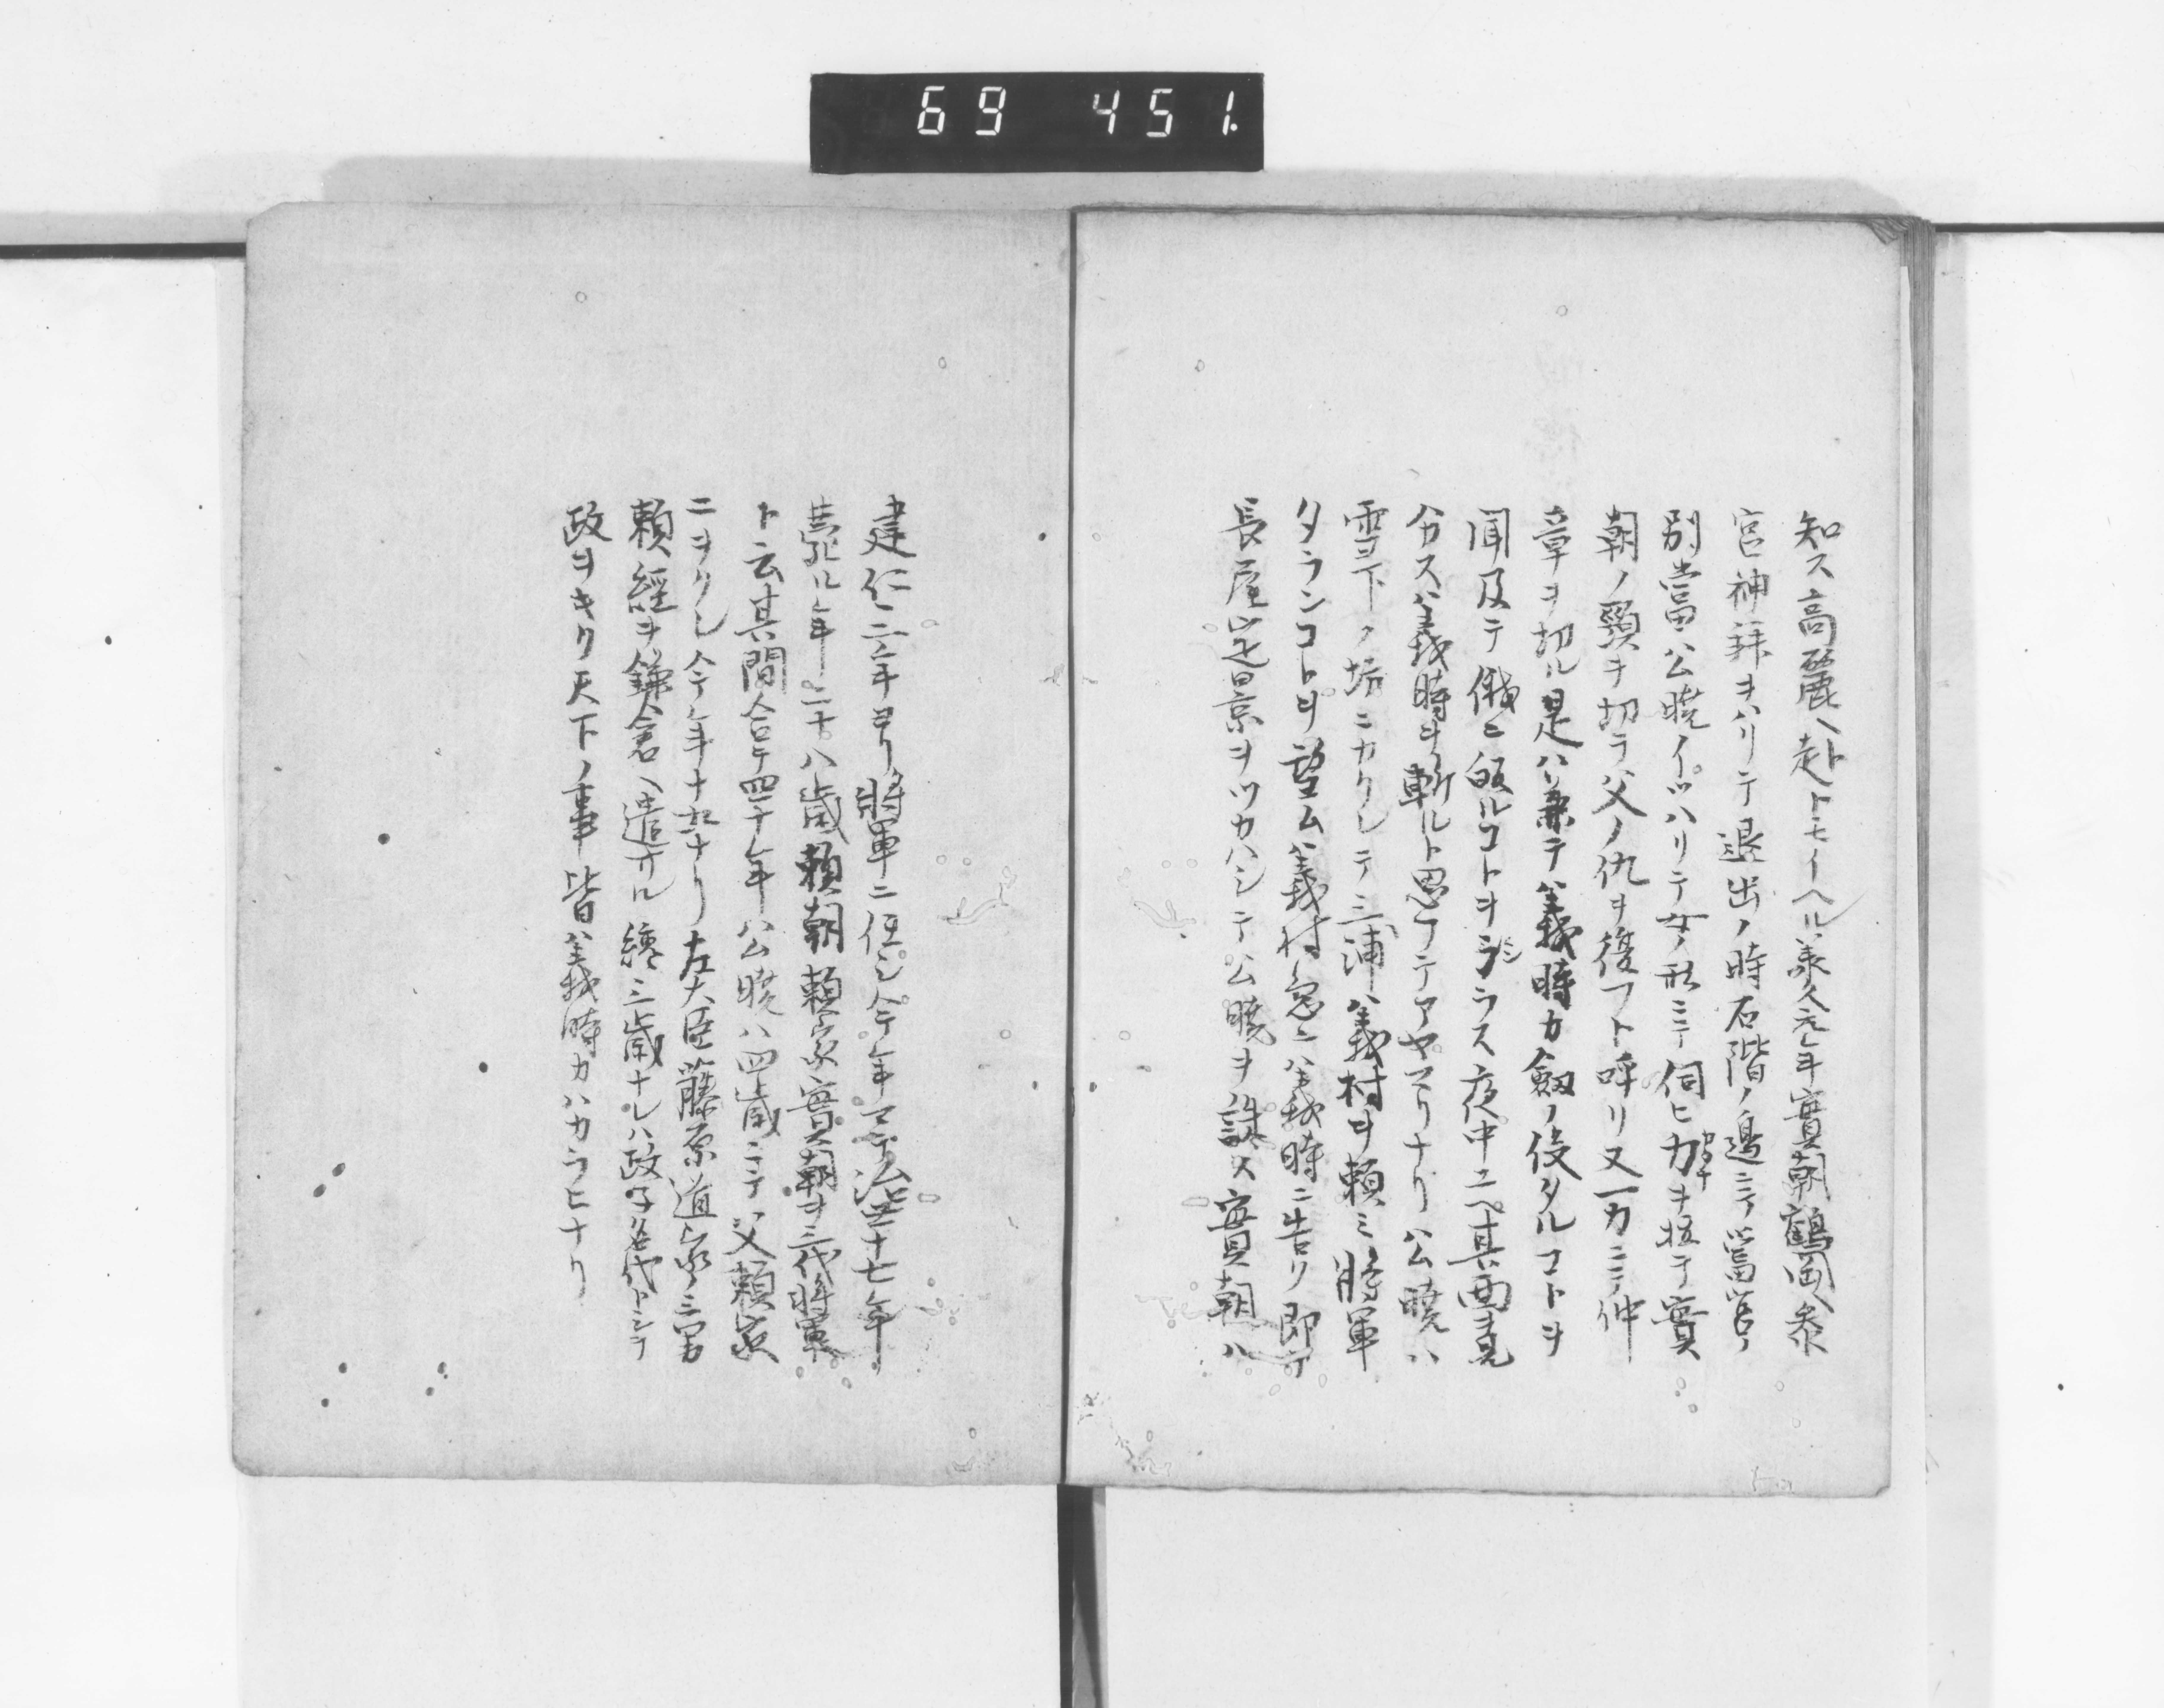 69 451.
知ス高麗ヘ赴トモイヘル義久元年實朝鶴岡ヘ參
宮神拜ヲハリテ退出ノ時石階ノ邊ニテ當宮ノ
別當公曉イツハリテ女ノ形ニテ伺ヒカタナヲ拉テ實
朝ノ頸ヲ切テ父ノ仇ヲ復フト呼リ又一刀ニテ仲
章ヲ切ル是ハ兼テ義時カ劔ノ役タルコトヲ
聞及テ俄ニ皈ルコトヲシラス夜中ユヘ其面見
分ス義時ヲ斬ルト思フテアヤマリナリ公曉ハ
雪下ノ坊ニカクレテ三浦義村ヲ頼ミ將軍
タランコトヲ望ム義村急ニ義時ニ告ク即
長尾定景ヲツカハシテ公曉ヲ誅ス實朝ハ
建仁三年ヨリ將軍ニ任シ今年マテ治世十七年
薨スル年二十八歳頼朝頼家實朝ヲ三代將軍
ト云其間合テ四十年公曉ハ四歳ニテ父頼家
ニヲクレ今年十九ナリ左大臣藤原道家ノ三男
頼經ヲ鎌倉ヘ遣サル纔三歳ナレハ政子名代トシテ
政ヲキク天下ノ事皆義時カハカラヒナリ